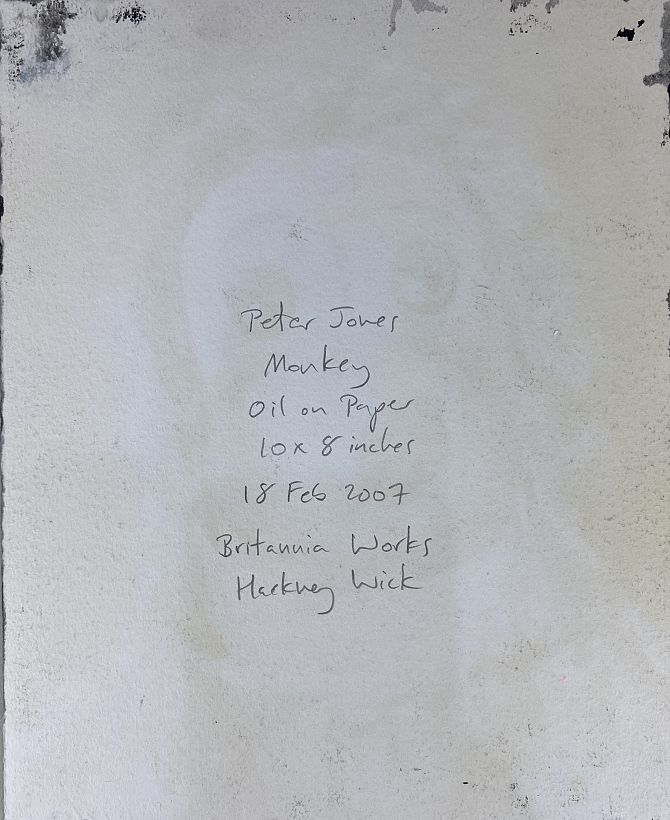 Peter Jones
Monkey
Oil on Paper
10 x 8 inches
18 Feb 2007
Britannia Works
Hackney Wick